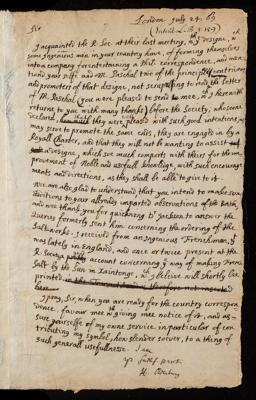 London July 24. 63
Sir
I acquainted the R. Soc. at their last meeting, wth ye designe, of
some ingenious men in your country have, of forming themselves
into a company for entertaining a Phil. correspondence, and men-
tiond your selfe and Mr. Paschal two of the principal contrivers
and promoters of that designe, not scrupling to read the letter
of Mr. Paschal (you were pleased to send to mee, and I herewith
returne to you with many thanks) before the Society, who soone
declared, they were pleased with such good intentions as
may serve to promote the same ends, they are engaged in by a
Royall Charter, and that they will not be wanting to assist
a designe, which soe much comports with theirs for the im-
provement of Noble and usefull knowledge, with such encourage-
ments and directions, as they shall be able to give to it.
We are also glad to understand that you intend to make some
additions to your already imparted observations of the Bath,
and wee thank you for quickning Dr Jackson to answer the
Queries formerly sent him concerning the ordering of the
Saltworks. I received from an ingenious Frenchman, yt
was lately in England, and once or twice present at the
R. Society a account concerning ye way of making French
Salt by the Sun in Xaintonge, wch I beleive will shortly be
printed
here
I pray, Sir, when you are ready for the country correspon-
dence, favour mee in giving mee notice of it, and as-
sure yourselfe of my owne service in particular of con-
tributing my symbol, how slender soever, to a thing of
such generall usefullnesse. I am
Sr yr faithf. servt
H. Oldenburg